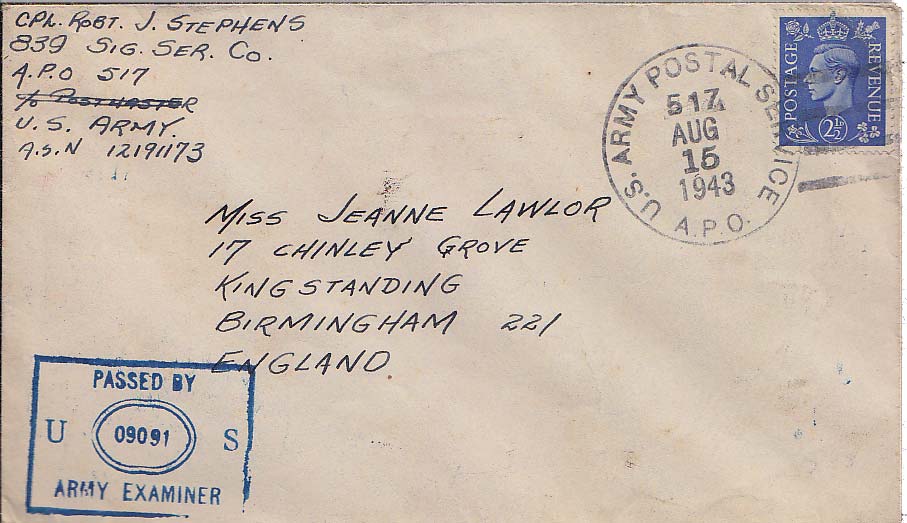 CPL. ROBT. J. STEPHENS
839 SIG. SER. CO.
A.P.O 517
c/o POSTMASTER
U.S. ARMY.
A.S.N 12191173
POSTAGE
REVENUE
2½D
U.S. ARMY POSTAL SERVICE
517
AUG
15
1943
A.P.O.
MISS JEANNE LAWLOR
17 CHINLEY GROVE
KINGSTANDING
BIRMINGHAM 22/
ENGLAND
PASSED BY
U 09091 S
ARMY EXAMINER